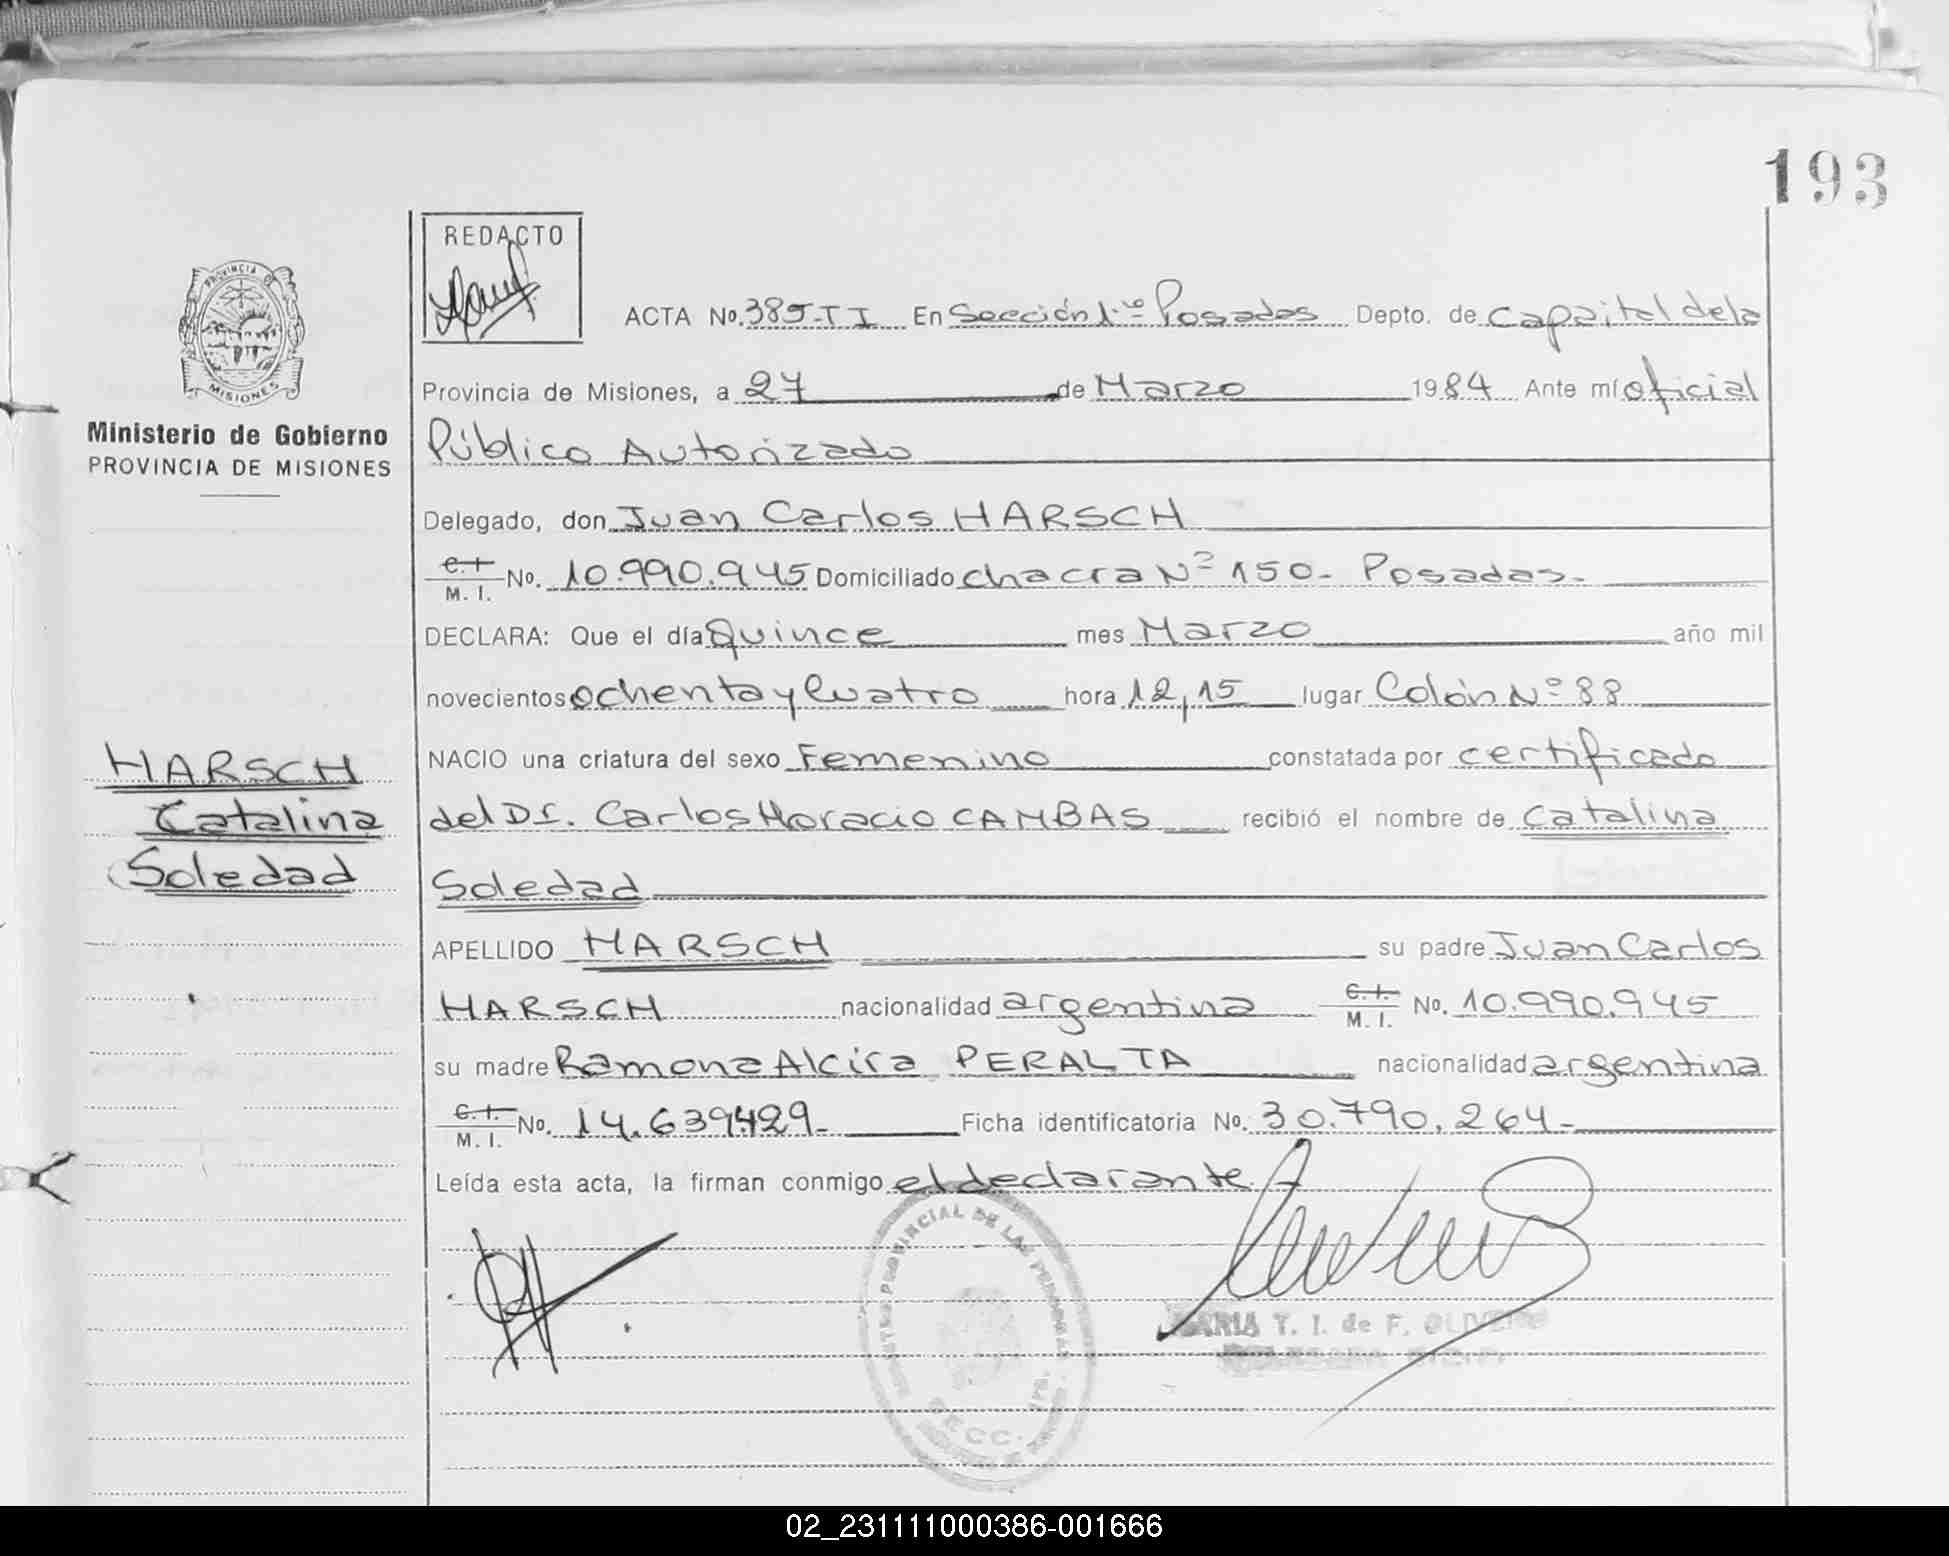 193
REDACTO
PROVINCIA DE
MISIONES
ACTA No. 385-TI En Sección 1ra Posadas Depto. de Capaital dela
Provincia de Misiones, a 27 de Marzo 1984 Ante mí oficial
Ministerio de Gobierno
PROVINCIA DE MISIONES
Público Autorizado
Delegado, don Juan Carlos HARSCH
C.I. M. I. No. 10.990.945 Domiciliado chacra Nº 150- Posadas-
DECLARA: Que el día Quince mes Marzo año mil
novecientos ochenta y Cuatro hora 12,15 lugar Colón Nº 88
HARSCH
Catalina
Soledad
NACIO una criatura del sexo Femenino constatada por certificado
del Dr. Carlos Horacio CAMBAS recibió el nombre de Catalina
Soledad
APELLIDO HARSCH su padre Juan Carlos
HARSCH nacionalidad argentina C.I. M. I. No. 10.990.945
su madre Ramona Alcira PERALTA nacionalidad argentina
C.I. M. I. No. 14.639.429- Ficha identificatoria No. 30.790.264-
Leída esta acta, la firman conmigo el declarante.
PROVINCIAL DE LAS PERSONAS
MARIA T. I. de F. OLIVERA
02_231111000386-001666